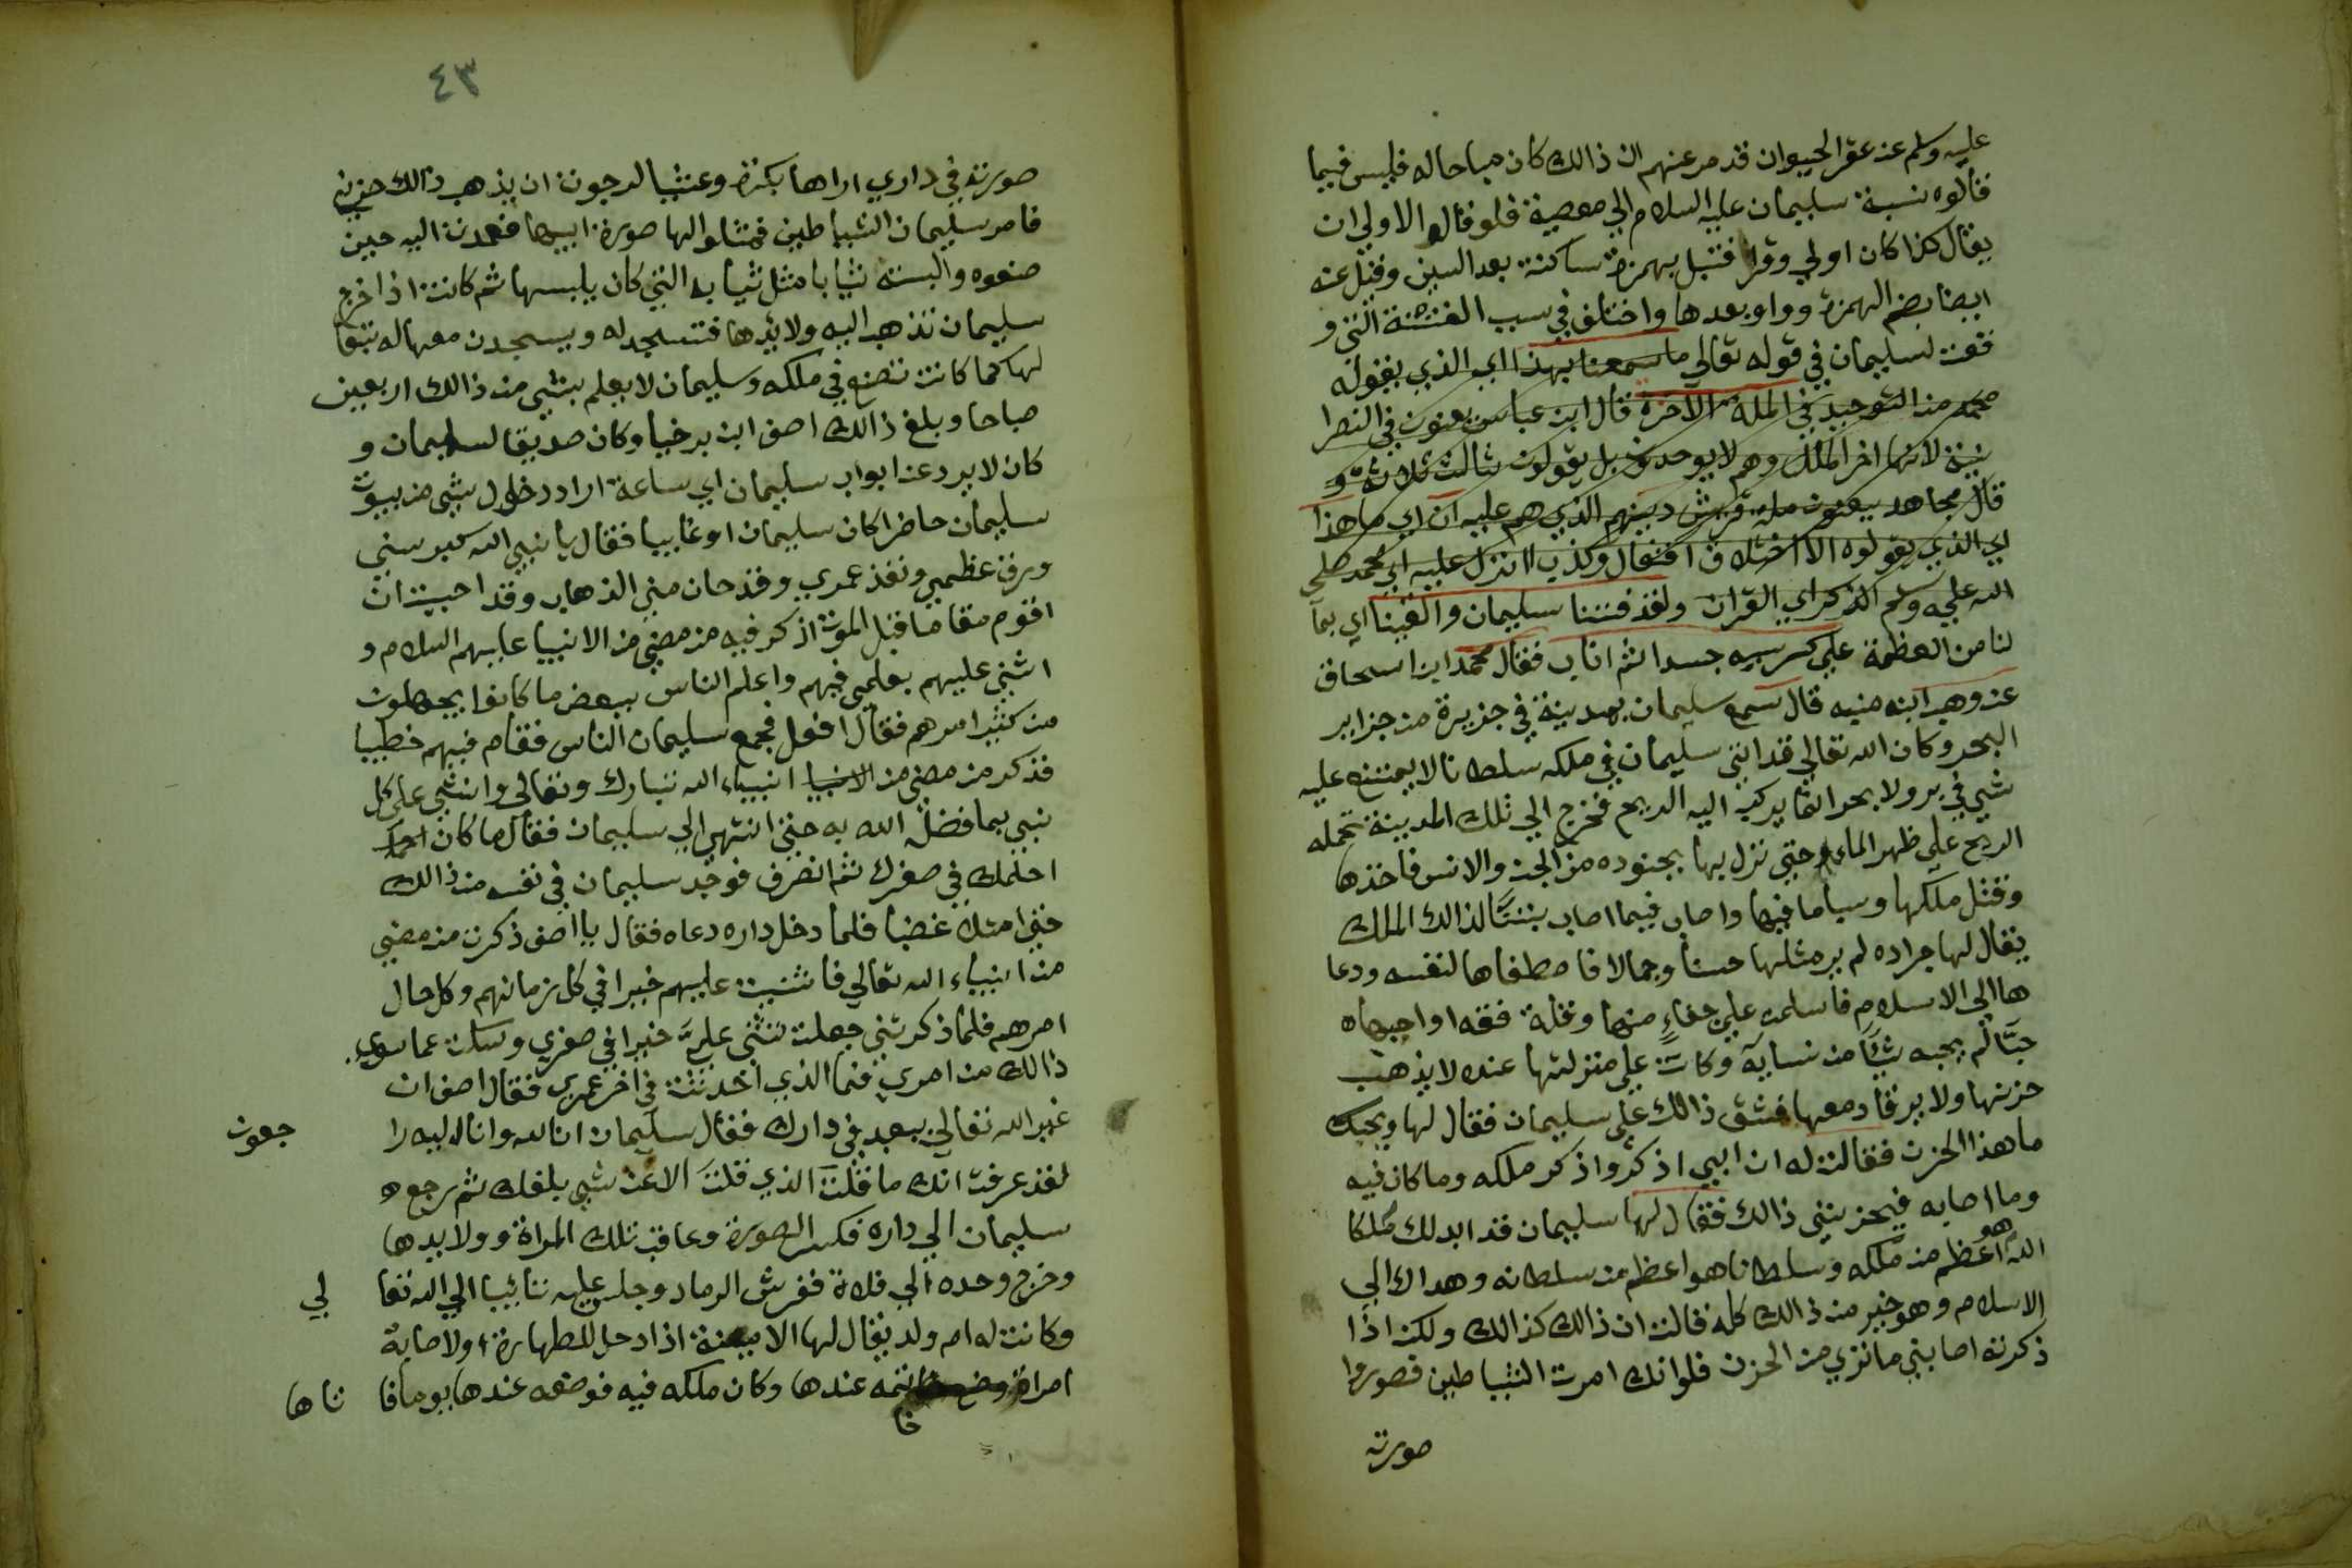 عليه وسلم عن عقر الحيوان قد مر عنهم ان ذالك كان مباحا له فليس فيما
قالوه نسبة سليمان عليه السلام الي معصية فلو قال الاولي ان
يقال كذا كان اولي وقرا قنبل بهمزة ساكنة بعد السين وقيل عنه
ايضا بضم الهمزة وواو بعدها واختلف في سبب الفتنة التي و
قعت لسليمان في قوله تعالي ما سمعنا بهذا اي الذي يقوله
محمد من التوحيد في الملة الاخرة قال ابن عباس يعنون في النصرا
نية لانها اخر الملل وهم لا يوحدون بل يقولون ثالث ثلاثة و
قال مجاهد يعنون ملة قريش دينهم الذي هم عليه ان اي ما هذا
اي الذي يقولوه الا اختلاق افتعال وكذب اانزل عليه اي محمد صلي
الله عليه وسلم الذكر اي القران ولقد فتنا سليمان والقينا اي بما
لنا من العظمة علي كرسيه جسدا ثم اناب فقال محمد ابن اسحاق
عن وهب ابنه منبه قال سمع سليمان بمدينة في جزيرة من جزاير
البحر وكان الله تعالي قد اتي سليمان في ملكه سلطانا لا يمتنع عليه
شي في بر ولا بحر انما يركب اليه الريح فخرج الي تلك المدينة تحمله
الريح علي ظهر الماء حتي نزل بها بجنوده من الجن والانس فاخذها
وقتل ملكها وسبا ما فيها واصاب فيما اصاب بنتا لذالك الملك
يقال لها جراده لم ير مثلها حسنا وجمالا فاصطفاها لنفسه ودعا
ها الي الاسلام فاسلمت علي جفاء منها وقلة فقه واحبها
حبا لم يحبه شيا من نسايه وكانت علي منزلتها عنده لا يذهب
حزنها ولا يرقا دمعها فشق ذالك علي سليمان فقال لها ويحك
ما هذا الحزن فقالت له ان ابي اذكره واذكر ملكه وما كان فيه
وما اصابه فيحزنني ذالك فقال لها سليمان قد ابدلك ملكا
الله هو اعظم من ملكه وسلطانا هو اعظم من سلطانه وهداك الي
الاسلام وهو خير من ذالك كله فقالت ان ذالك كذالك ولكن اذا
ذكرته اصابني ما تري من الحزن فلو انك امرت الشياطين فصوروا
صورته
٤٣
صورته في داري اراها بكرة وعشيا لرجوت ان يذهب ذالك حزني
فامر سليمان الشياطين فمثلوا لها صورة ابيها فعمدت اليه حين
صنعوه والبسته ثيابا مثل ثيابه التي كان يلبسها ثم كانت اذا خرج
سليمان تذهب اليه ولايدها فتسجد له ويسجدن معها له تبعا
لها كما كانت تصنع في ملكه وسليمان لا يعلم بشي من ذالك اربعين
صباحا وبلغ ذالك اصف ابن برخيا وكان صديقا لسليمان و
كان لا يرد عن ابواب سليمان اي ساعة اراد دخول شي من بيوت
سليمان حاضرا كان سليمان او غايبا فقال يا نبي الله كبر سني
ورق عظمي ونفذ عمري وقد حان مني الذهاب وقد احببت ان
اقوم مقاما قبل الموت اذكر فيه من مضي من الانبيا عليهم السلام و
اثني عليهم بعلمي فيهم واعلم الناس ببعض ما كانوا يجهلون
من كثير امرهم فقال افعل فجمع سليمان الناس فقام فيهم خطيبا
فذكر من مضي من الانبيا انبياء الله تبارك وتعالي واثني علي كل
نبي بما فضل الله به حتي انتهي الي سليمان فقال ما كان
احلمك في صغرك ثم انصرف فوجد سليمان في نفسه من ذالك
حتي امتلا غضبا فلما دخل داره دعاه فقال يا اصف ذكرت من مضي
من انبياء الله تعالي فاثنيت عليهم خيرا في كل زمانهم وكل حال
امرهم فلما ذكرتني جعلت تثني علي خيرا في صغري وسكت عما سوي
ذالك من امري فما الذي احدثت في اخر عمري فقال اصف ان
غير الله تعالي يعبد في دارك فقال سليمان انا لله وانا اليه را جعون
لقد عرفت انك ما قلت الذي قلت الا عن شي بلغك ثم رجع
سليمان الي داره فكسر الصورة وعاقب تلك المراة وولايدها
وخرج وحده الي فلاة ففرش الرماد وجلس عليه تائبا الي الله تعا لي
وكانت له ام ولد يقال لها الامينة اذا دخل للطهارة اولاصابة
امراة وضع خاتمه عندها وكان ملكه فيه فوضعه عندها يوما فا تاها
خا